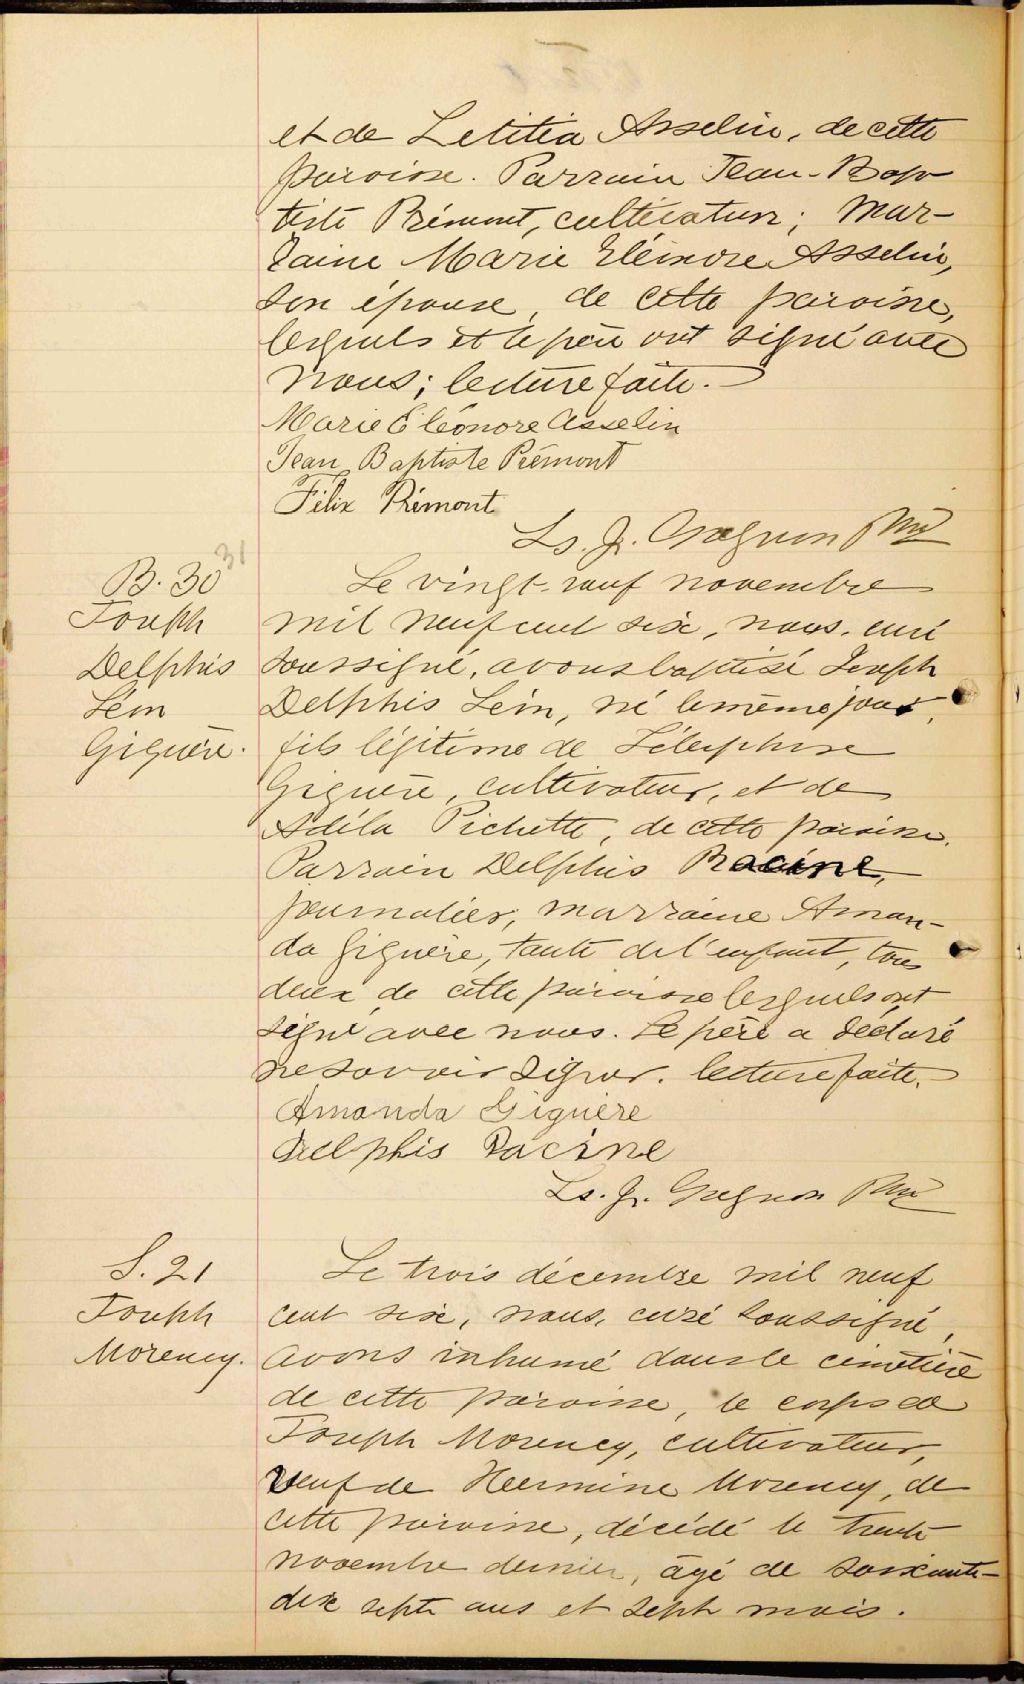 et de Letitia Asselin, de cette
paroisse. Parrain Jean-Bap-
tiste Prémont, cultivateur; mar-
raine Marie Eléonore Asselin,
son épouse, de cette paroisse,
lesquels et le père ont signé avec
nous; lecture faite.
Marie Eléonore Asselin
Jean Baptiste Prémont
Félix Prémont
Ls. J. Gagnon Ptre
B. 30 31
Joseph
Delphis
Léon
Giguère.
Le vingt-neuf novembre
mil neuf cent six, nous, curé
soussigné, avons baptisé Joseph
Delphis Léon, né le même jour,
fils légitime de Télesphore
Giguère, cultivateur, et de
Adéla Pichette, de cette paroisse.
Parrain Delphis Racine,
journalier; marraine Aman-
da Giguère, tante de l'enfant, tous
deux de cette paroisse lesquels ont
signé avec nous. Le père a déclaré
ne savoir signer. lecture faite.
Amanda Giguère
Delphis Racine
Ls. J. Gagnon Ptre
S. 21
Joseph
Morency.
Le trois décembre mil neuf
cent six, nous, curé soussigné,
avons inhumé dans le cimetière
de cette paroisse, le corps de
Joseph Morency, cultivateur,
veuf de Hermine Morency, de
cette paroisse, décédé le trente
novembre dernier, âgé de soixante-
dix sept ans et sept mois.